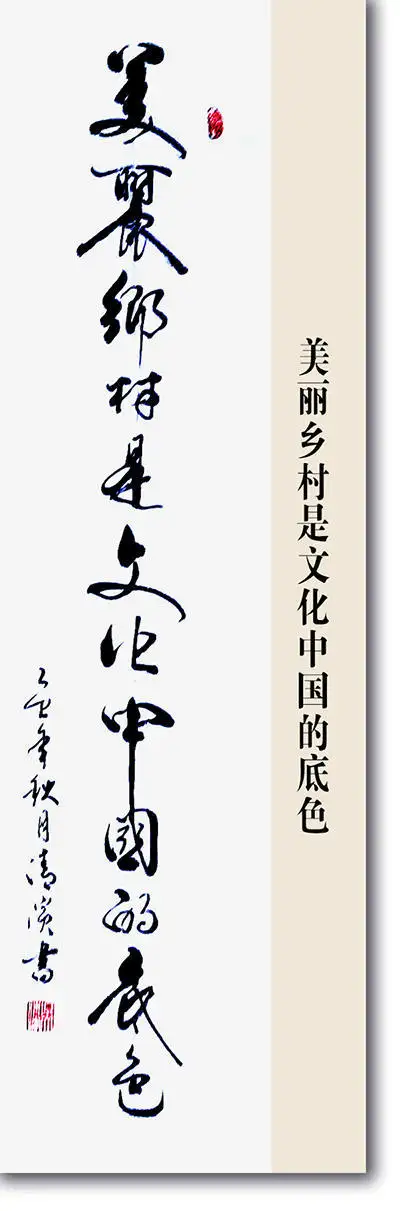 美丽乡村是文化中国的底色
美麗鄉村是文化中國的底色
年秋月清書